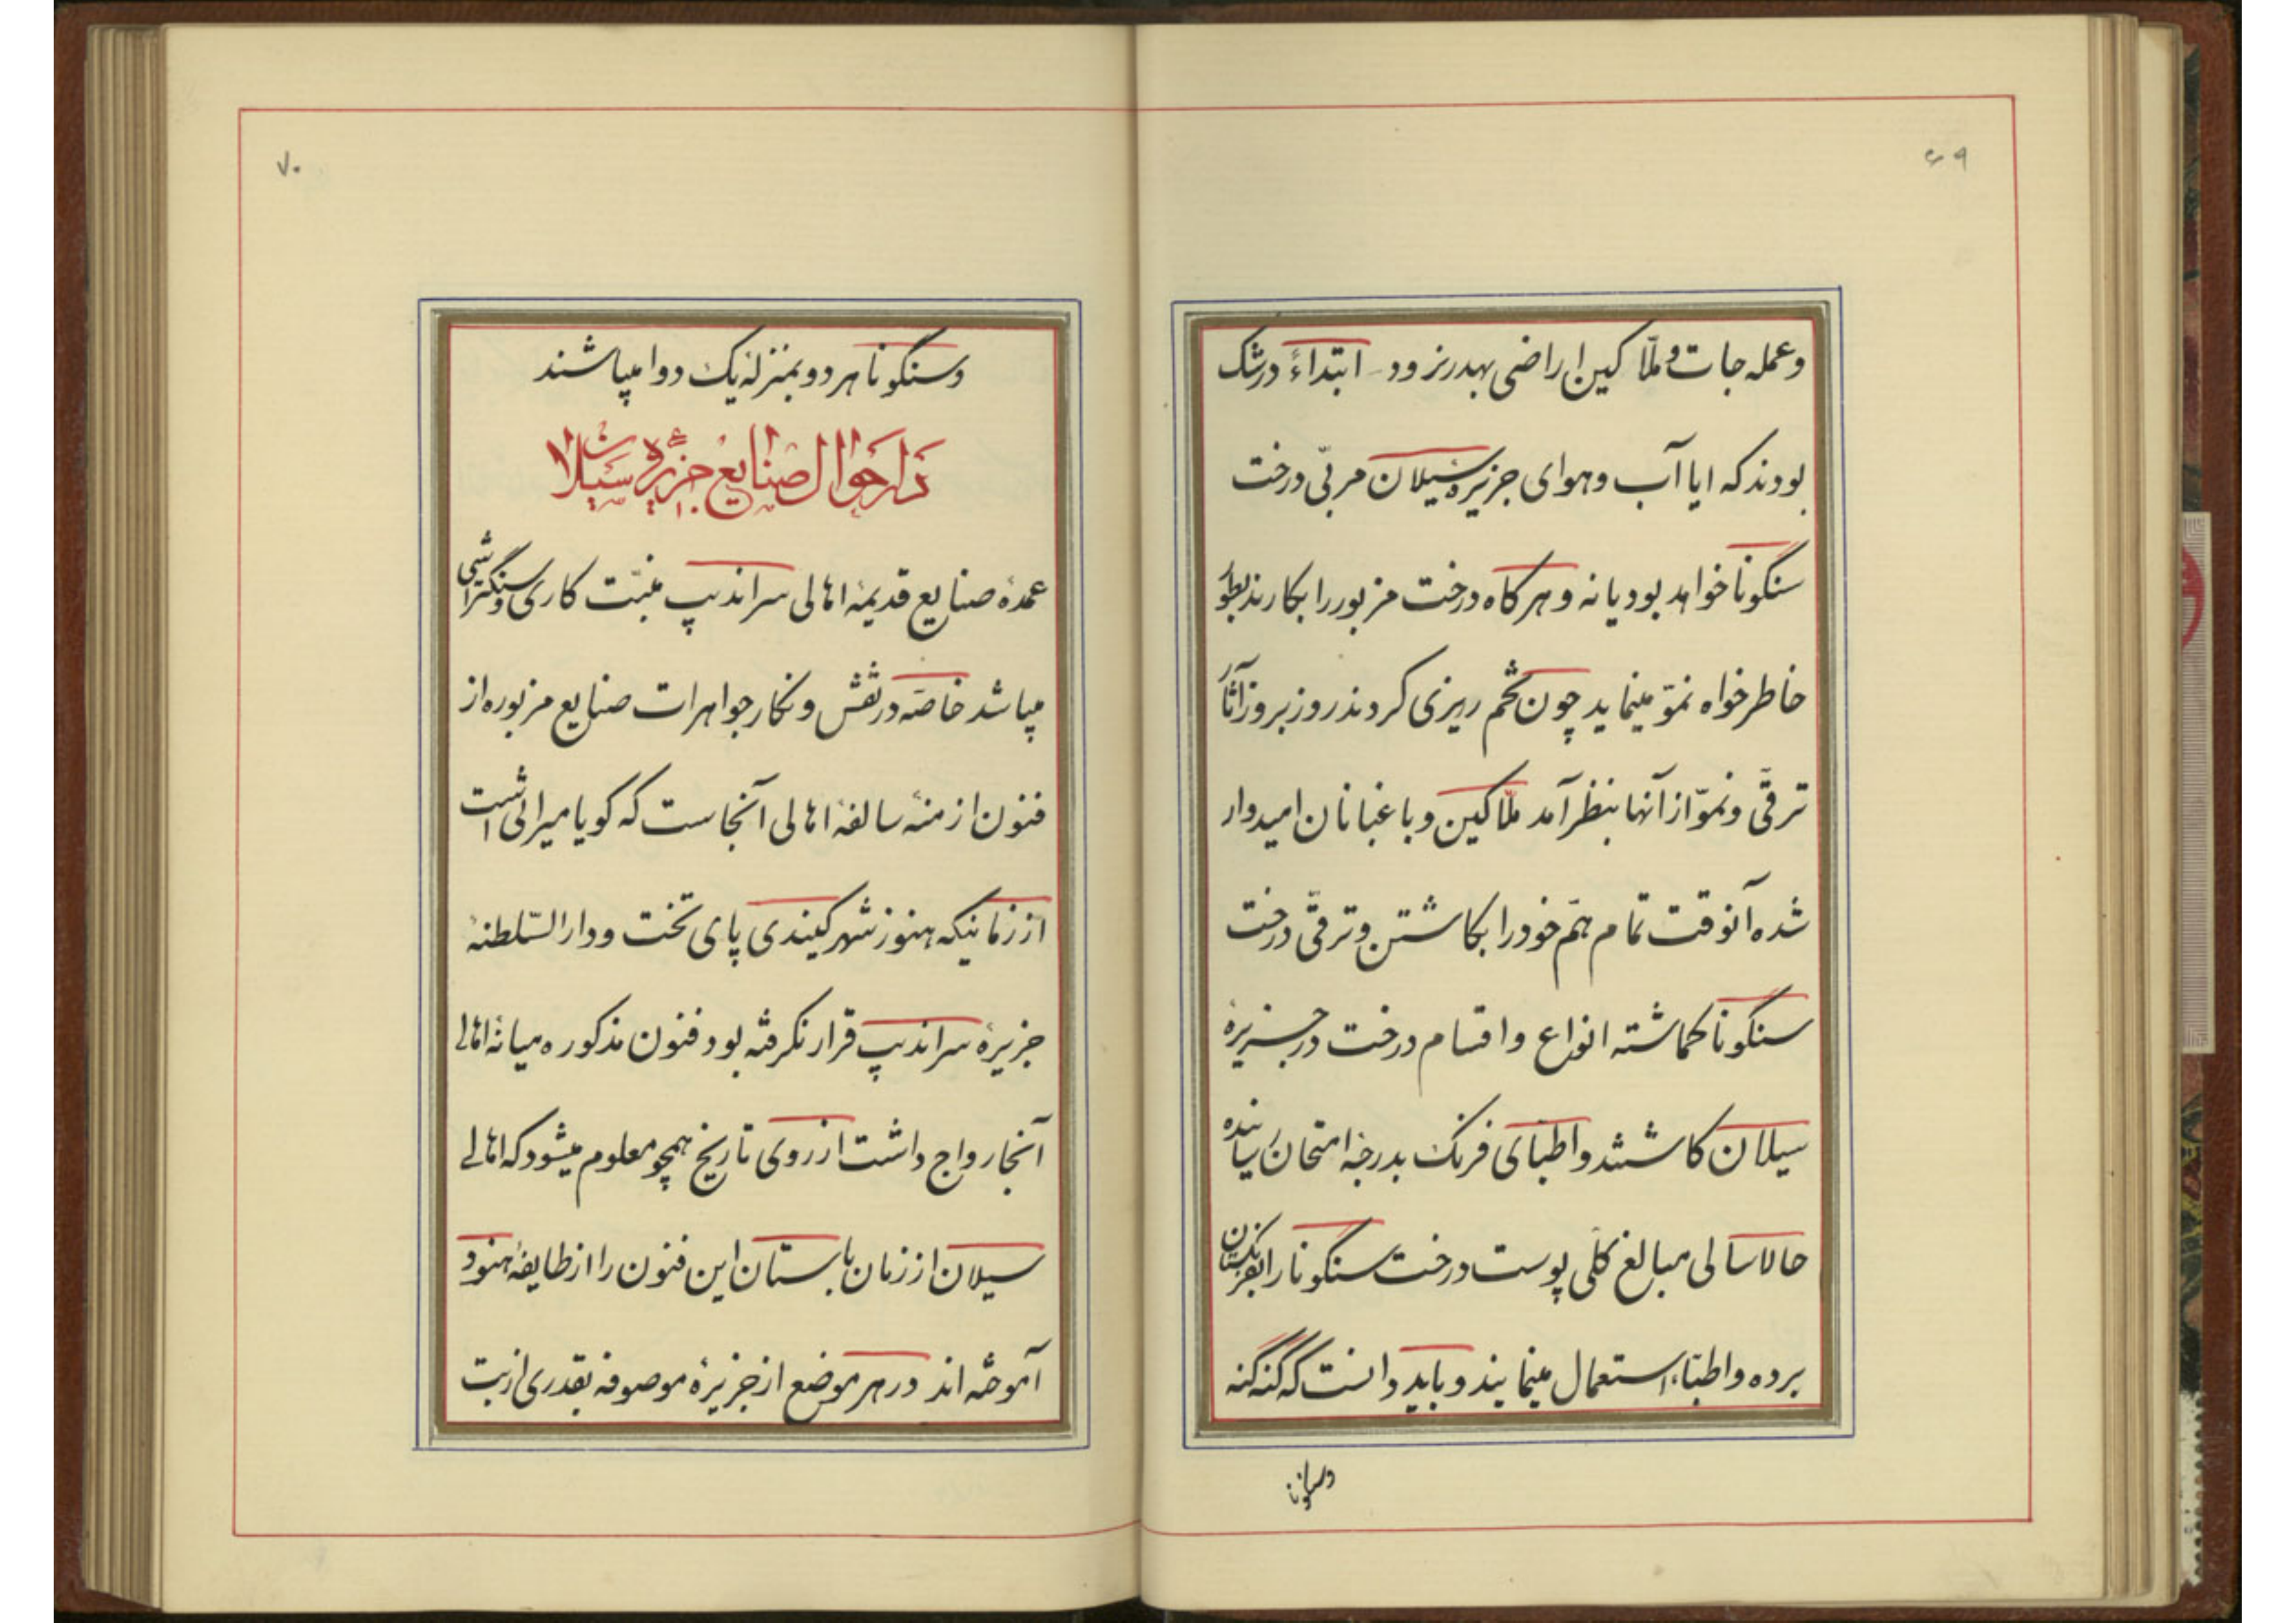 ۶۹
وعمله جات و ملّاکین اراضی بهدر نرود ابتداءً در شک
بودند که ایا آب و هوای جزیره سیلان مربّی درخت
سنگونا خواهد بود یا نه و هرکاه درخت مزبور را بکارند بطور
خاطرخواه نموّ مینماید چون تخم ریزی کردند روز بروز آثار
ترقّی و نموّ از آنها بنظر آمد ملّاکین و باغبانان امیدوار
شده آنوقت تمام همّ خود را بکاشتن و ترقّی درخت
سنگونا کماشته انواع و اقسام درخت در جزیرهٔ
سیلان کاشتند و اطبای فرنک بدرجهٔ امتحان رسانیده
حالا سالی مبالغ کلّی پوست درخت سنگونا را بفرنکستان
برده و اطبّاء استعمال مینمایند و باید دانست که گنه گنه
وسنگونا
۷۰
وسنگونا هر دو بمنزلهٔ یک دوا میباشند
در احوال صنایع جزیرهٔ سیلان
عمدهٔ صنایع قدیمهٔ اهالی سراندیپ منبّت کاری و سنگتراشی
میباشد خاصّه در نقش و نکار جواهرات صنایع مزبوره از
فنون ازمنهٔ سالفهٔ اهالی آنجاست که کویا میراثی است
از زمانیکه هنوز شهر کیندی پای تخت و دارالسّلطنهٔ
جزیرهٔ سراندیپ قرار نکرفته بود فنون مذکوره میانهٔ اهالی
آنجا رواج داشت از روی تاریخ همچو معلوم میشود که اهالی
سیلان از زمان باستان این فنون را از طایفهٔ هنود
آموخته اند در هر موضع از جزیرهٔ موصوفه بقدری از بت